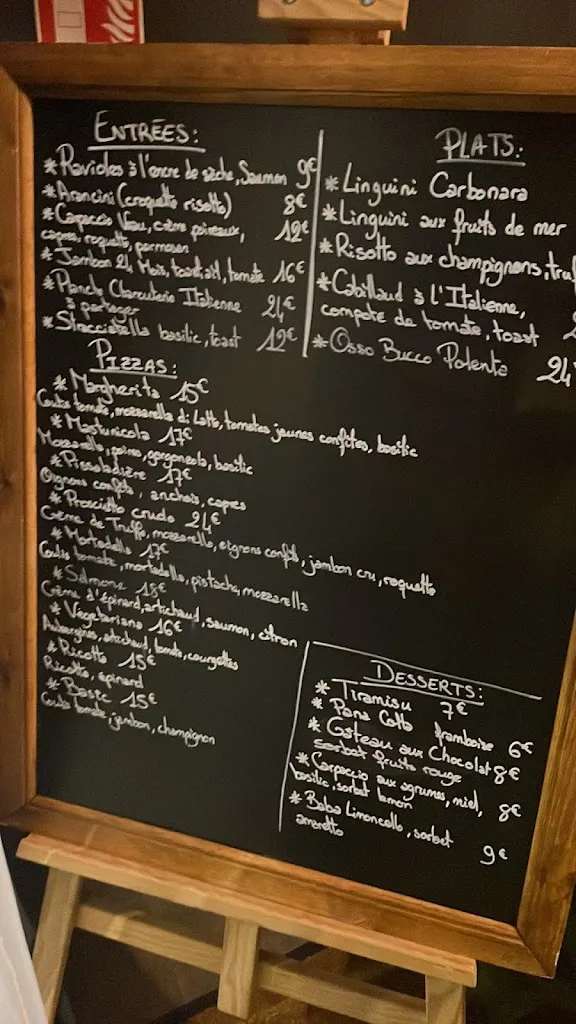 ENTRÉES:
* Ravioles à l'encre de sèche, Saumon 9€
* Arancini (croquette risotto) 8€
* Capaccio Veau, crème poireaux, 12€
capres, roquette, parmesan
* Jambon 24 Mois, toast ail, tomate 16€
* Planch Charcuterie Italienne 24€
à partager
* Stracciatella basilic, toast 12€
PLATS:
* Linguini Carbonara
* Linguini aux fruits de mer
* Risotto aux champignons, truf
* Cabillaud à l'Italienne,
compote de tomate, toast
* Osso Bucco Polenta 24
PIZZAS:
* Margherita 15€
Coulis tomate, mozzarella di Latte, tomates jaunes confites, basilic
* Mastunicola 17€
Mozzarella, poivre, gorgonzola, basilic
* Pissaladière 17€
Oignons confits, anchois, capres
* Prosciutto crudo 24€
Crème de Truffe, mozzarella, oignons confits, jambon cru, roquette
* Mortadella 17€
Coulis tomate, mortadella, pistache, mozzarella
* Salmone 18€
Crème d'épinard, artichaud, saumon, citron
* Vegetariana 16€
Aubergines, artichaud, tomate, courgettes
* Ricotta 15€
Ricotta, épinard
* Basic 15€
Coulis tomate, jambon, champignon
DESSERTS:
* Tiramisu 7€
* Pana Cotta framboise 6€
* Gateau aux Chocolat 8€
sorbet fruits rouge
* Carpaccio aux agrumes, miel, 8€
basilic, sorbet limon
* Baba Limoncello, sorbet 9€
amaretto